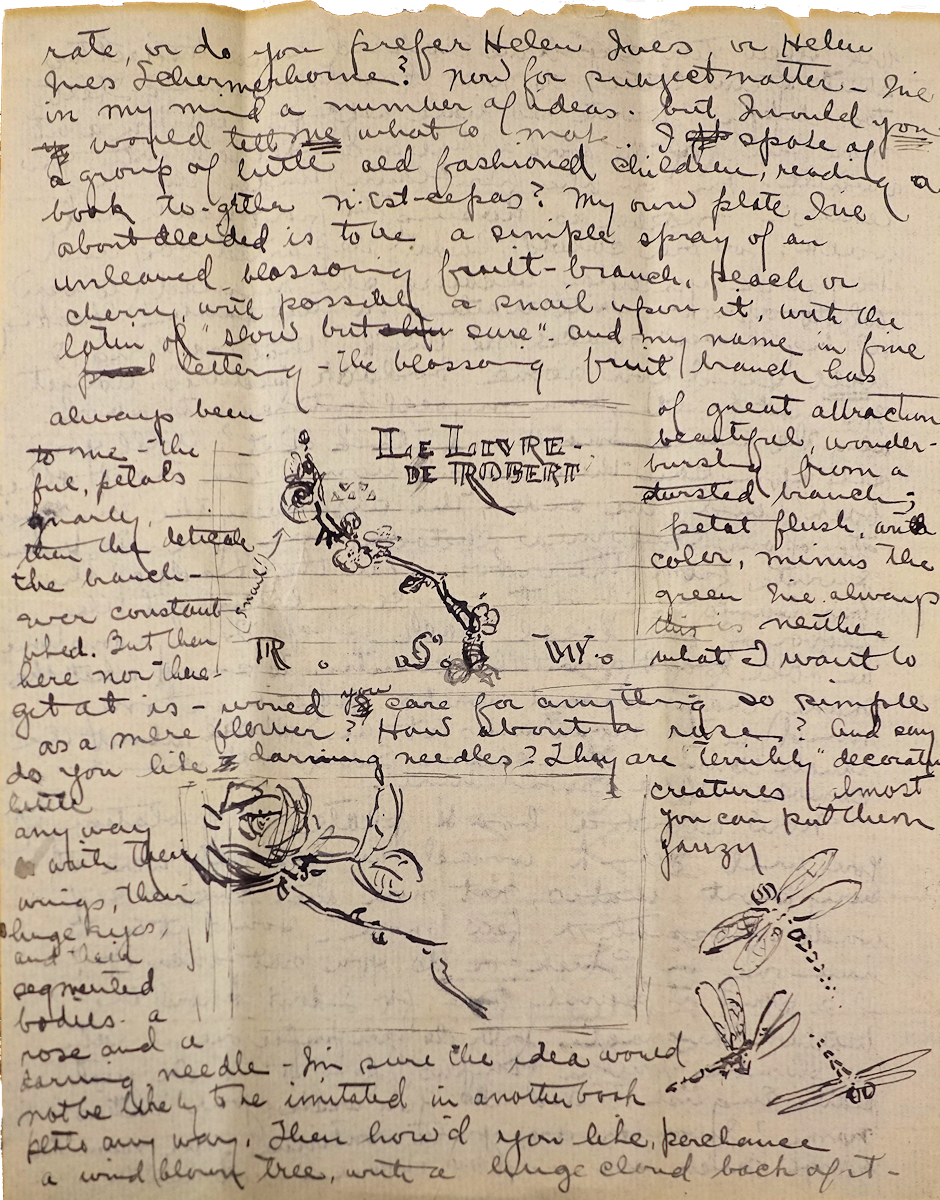 rate, or do you prefer Helen Ines, or Helen
Ines Schermerhorne? Now for subject matter - I've
in my mind a number of ideas. but I would
would tell me what to I spose of you
a group of little old fashioned children, reading a
book to-gether n'est-cepas? My own plate I've
about decided is to be a simple spray of an
unleaved blossoing fruit-branch, peach or
cherry, with possibly a snail upon it, with the
latin of "slow but sure". and my name in fine
lettering - The blossoing fruit branch has
always been of great attraction
to me - the beautiful, wonder-
ful, petals bursting from a
gnarly, branch;
then the delicate petal flush, with
the branch - color, minus the
over constant green I've always
liked. But then this is neither
here nor there - what I want to
LE LIVRE -
DE ROBERT
(snail)
R. S. W.
get at is - would you care for anything so simple
as a mere flower? How about a rose? And say
do you like darning needles? They are "terribly" decorative
little creatures (almost
any way you can put them
with their gauzy
wings, their
huge eyes,
and their
segmented
bodies. a
rose and a
darning needle - I'm sure the idea would
not be likely to be imitated in another book
plate any way. Then how'd you like, perchance
a wind blown tree, with a huge cloud back of it -